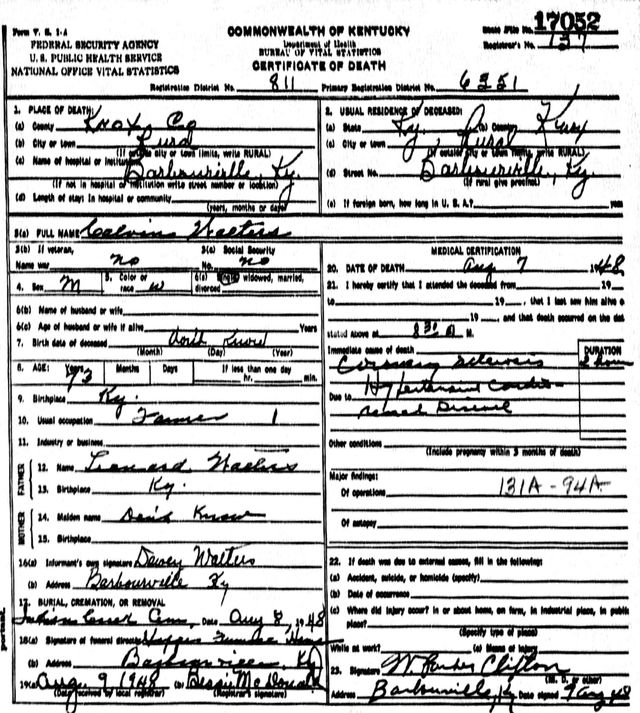 Form V. S. 1-A
COMMONWEALTH OF KENTUCKY
State File No. 17052
FEDERAL SECURITY AGENCY
Department of Health
Registrar's No. 137
U. S. PUBLIC HEALTH SERVICE
BUREAU OF VITAL STATISTICS
NATIONAL OFFICE VITAL STATISTICS
CERTIFICATE OF DEATH
Registration District No. 811 Primary Registration District No. 6351
1. PLACE OF DEATH:
(a) County Knox Co
(b) City or town Rural
(If outside city or town limits, write RURAL)
(c) Name of hospital or institution
Barbourville, Ky.
(If not in hospital or institution write street number or location)
(d) Length of stay: In hospital or community
(years, months or days)
2. USUAL RESIDENCE OF DECEASED:
(a) State Ky. (b) County Knox
(c) City or town Rural
(If outside city or town limits, write RURAL)
(d) Street No. Barbourville, Ky.
(If rural give precinct)
(e) If foreign born, how long in U. S. A.? years
3(a) FULL NAME Calvin Walters
3(b) If veteran,
Name war no
3(c) Social Security
No. no
4. Sex M
5. Color or
race w
6(a) Single, widowed, married,
divorced
6(b) Name of husband or wife
6(c) Age of husband or wife if alive Years
7. Birth date of deceased Don't Know
(Month) (Day) (Year)
8. AGE: Years Months Days If less than one day
73 hr. min.
9. Birthplace Ky.
10. Usual occupation Farmer 1
11. Industry or business
FATHER
12. Name Leonard Walters
13. Birthplace Ky.
MOTHER
14. Maiden name Don't Know
15. Birthplace
16(a) Informant's own signature Dewey Walters
(b) Address Barbourville Ky
17. BURIAL, CREMATION, OR REMOVAL
Cem. Date Aug 8, 1948
18(a) Signature of funeral director Funeral Home
(b) Address Barbourville, Ky
19(a) Aug. 9 1948 (b) Bessie McDonald
(Date received by local registrar) (Registrar's signature)
MEDICAL CERTIFICATION
20. DATE OF DEATH Aug 7 1948
21. I hereby certify that I attended the deceased from 19
to 19 , that I last saw him alive o
19 , and that death occurred on the dat
stated above at 8:30 A M.
Immediate cause of death
DURATION
Coronary Sclerosis 2 hours
Due to Hypertensive Cardio-
renal Disease
Other conditions
(Include pregnancy within 3 months of death)
Major findings:
Of operations 131A - 94A
Of autopsy
22. If death was due to external causes, fill in the following:
(a) Accident, suicide, or homicide (specify)
(b) Date of occurrence
(c) Where did injury occur? in or about home, on farm, in industrial place, in public
place?
(Specify type of place)
While at work? (e) Means of Injury
23. Signature W. Parker Clifton
(M. D. or other)
Address Barbourville, Ky Date signed 9 Aug 48